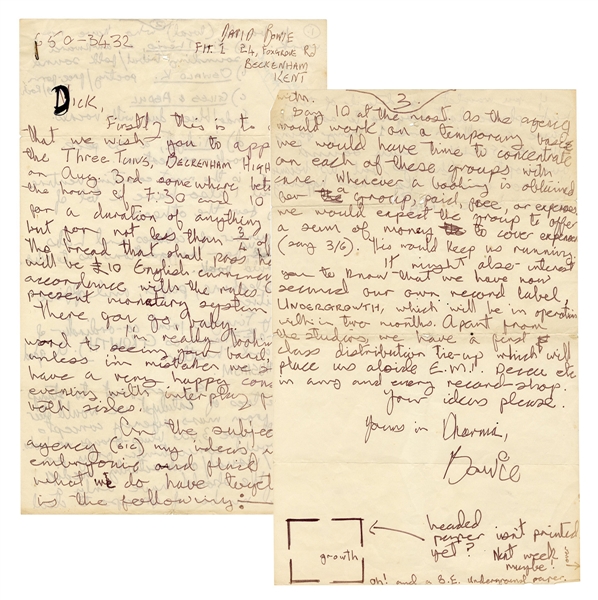 650-3432
DAVID BOWIE
FLT. 1 24, FOXGROVE RD
BECKENHAM
KENT
DICK,
Firstly this is to
that we wish you to app
the THREE TUNS, BECKENHAM HIGH
on Aug. 3rd somewhere bet
the hours of 7:30 and 10
for a duration of anything
but for not less than 3/4 of
The bread that shall pass h
will be £10 English curren
accordance with the rules
present monetary system
There you go baby.
I'm really looking
ward to seeing your band
unless im mistaken we s
have a very happy con
evening with interplay f
both sides.
On the subject
agency (sic) my ideas,
embryonic and fluid
what we do have toget
is the following:
3.
with.
say 10 at the most. As the agency
would work on a temporary basis
we would have time to concentrate
on each of these groups with
care. Whenever a booking is obtained
for a group, paid, free, or expenses
we would expect the group to offer
a sum of money to cover expenses
(say 3/6). This would keep us running.
It might also interest
you to know that we have now
secured our own record label,
UNDERGROWTH, which will be in operation
within two months. Apart from
the studios, we have a first
class distribution tie-up which will
place us aloside E.M.I. Decca etc
in any and every record shop.
Your ideas please.
Yours in Dharma,
Bowie
growth
headed
paper isn't printed
yet? Next week
maybe!
oh! and a B.E. Underground paper